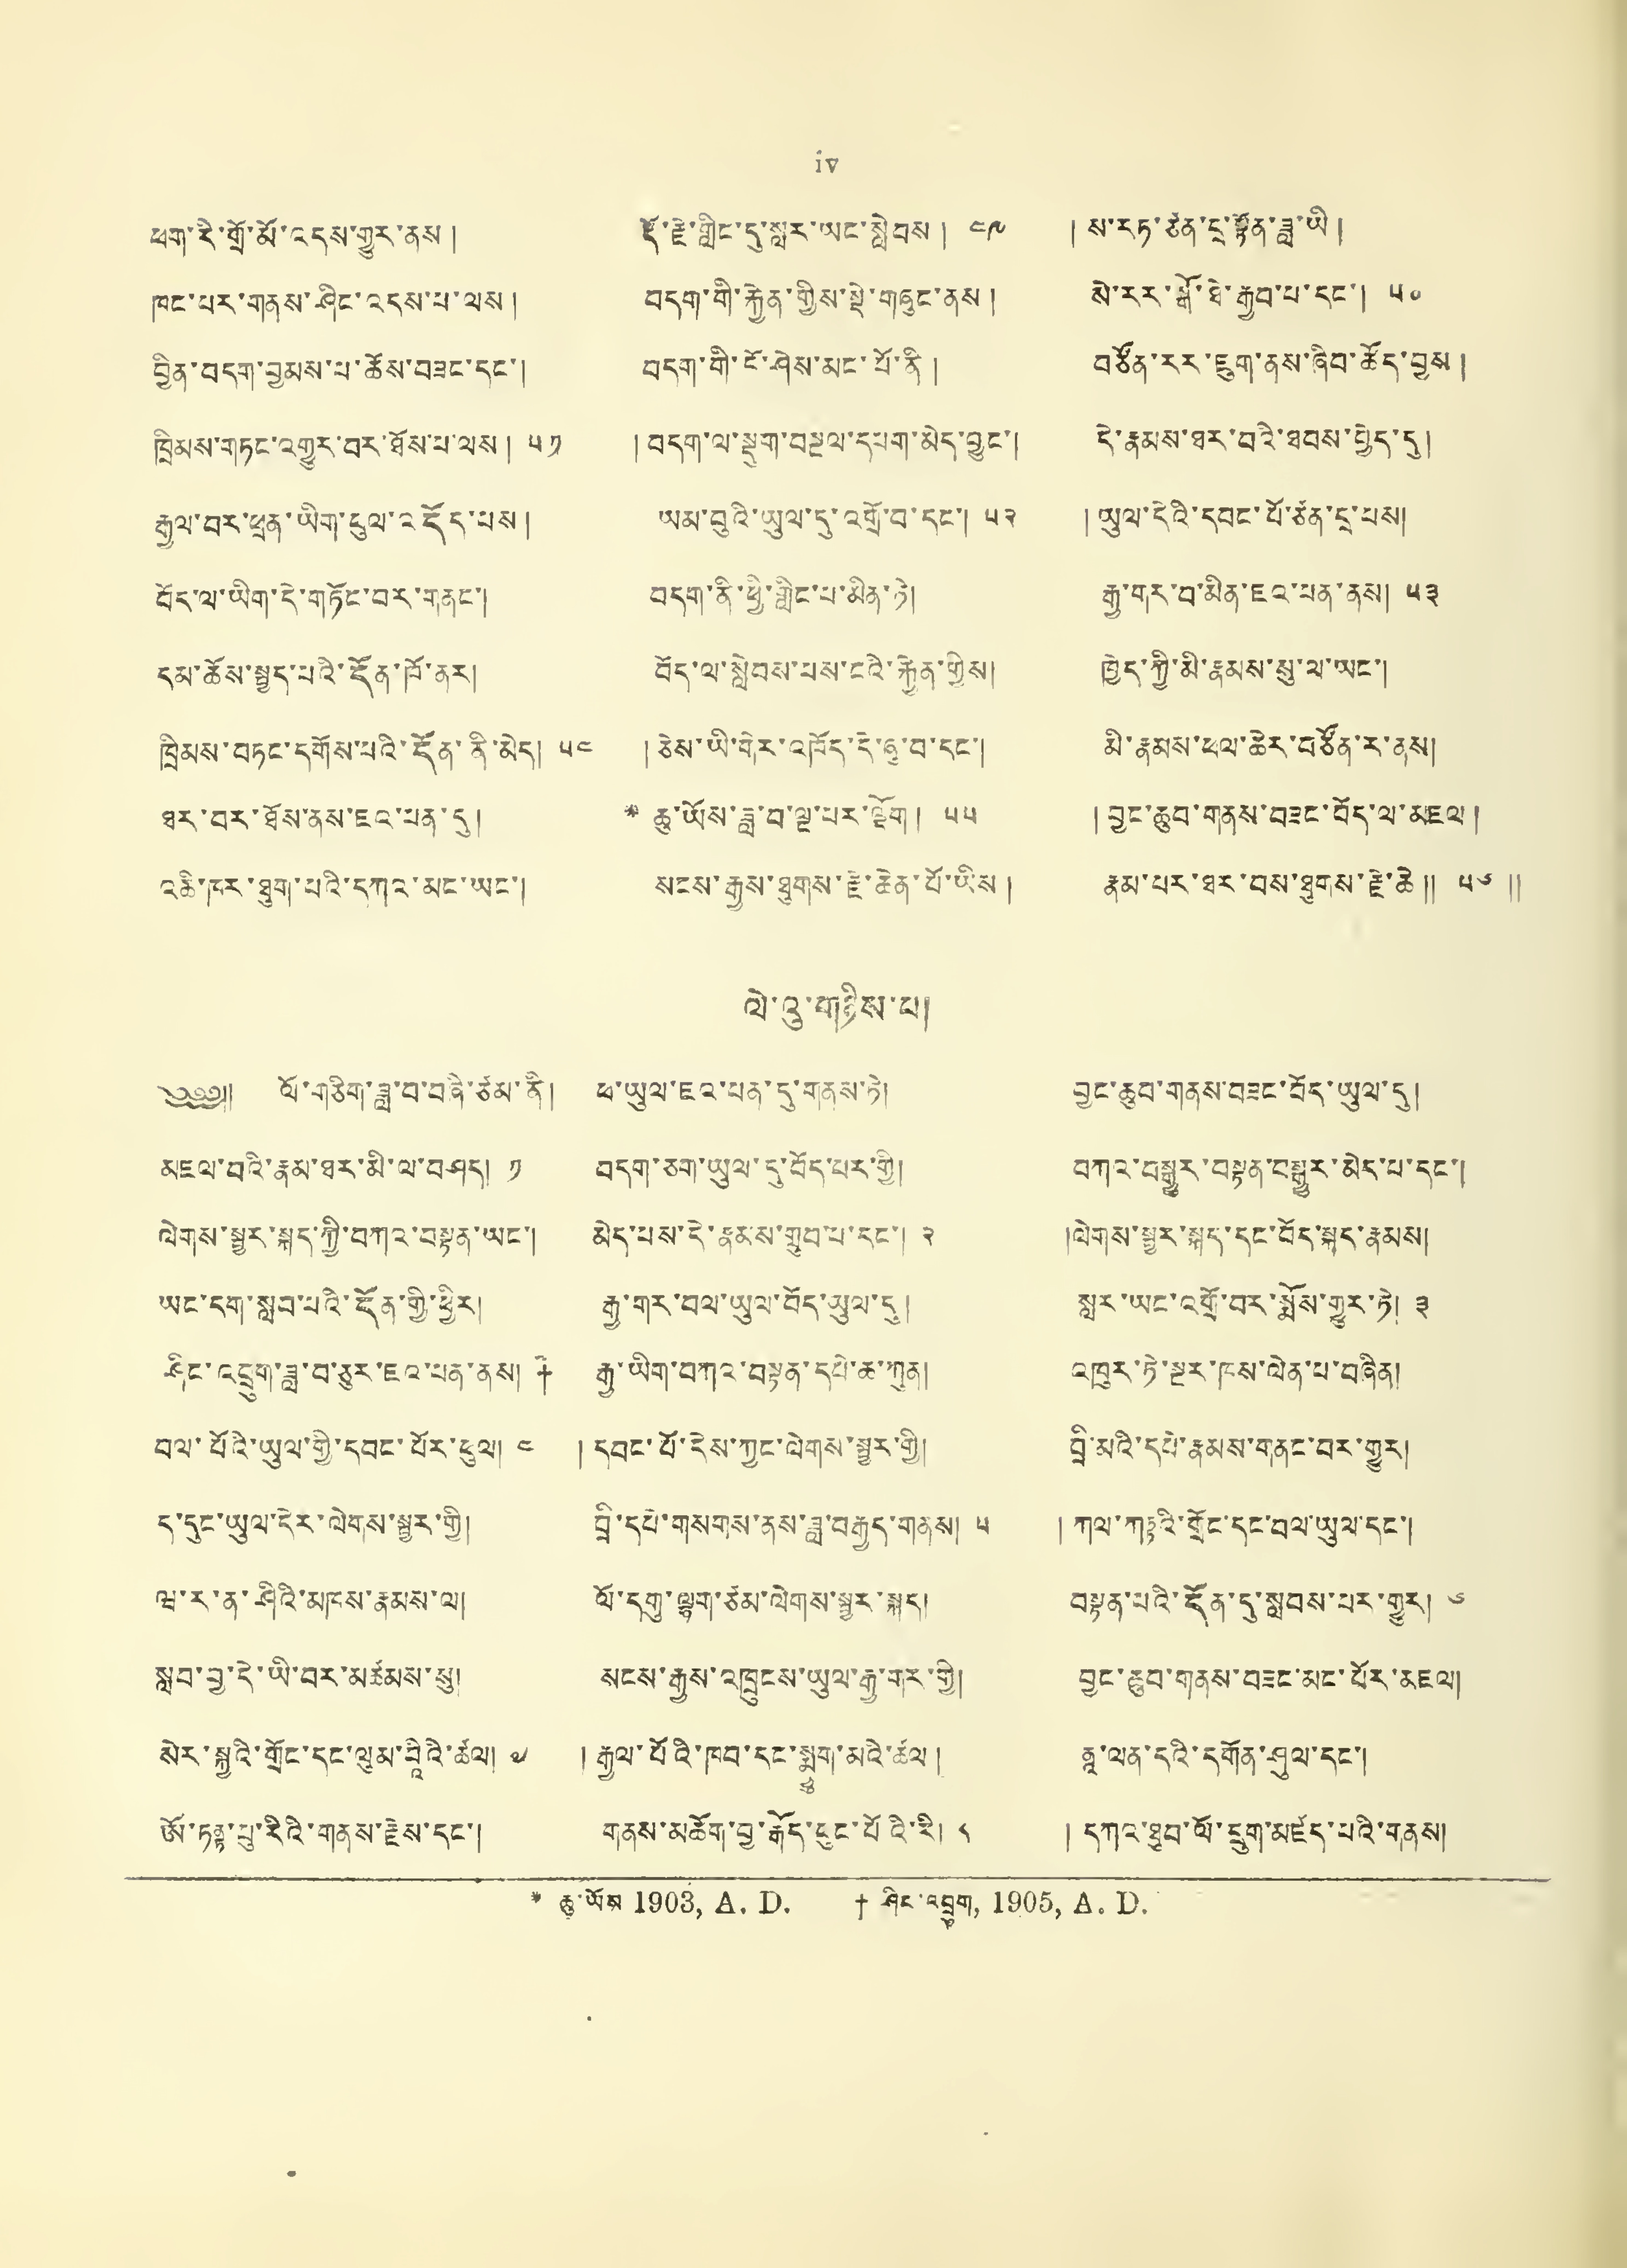 iv
ཕག་རི་གྲོ་མོ་འདས་གྱུར་ནས། རྡོ་རྗེ་གླིང་དུ་སླར་ཡང་སླེབས། ༤༩ །ས་རཏ་ཙན་དྲ་སྟོན་ཟླ་ཡི།
ཁང་པར་གནས་ཤིང་འདས་པ་ལས། བདག་གི་རྐྱེན་གྱིས་སྡེ་གཞུང་ནས། སེ་རར་སྒོ་ཐེ་རྒྱབ་པ་དང་། ༥༠
བྱིན་བདག་བྱམས་པ་ཆོས་བཟང་དང་། བདག་གི་ངོ་ཤེས་མང་པོ་ནི། བཙོན་རར་བཅུག་ནས་ཞིབ་ཆོད་བྱས།
ཁྲིམས་གཏང་འགྱུར་བར་ཐོས་པ་ལས། ༥༡ །བདག་ལ་སྡུག་བསྔལ་དཔག་མེད་བྱུང་། དེ་རྣམས་ཐར་བའི་ཐབས་བྱེད་དུ།
རྒྱལ་བར་ཕྲན་ཡིག་ཕུལ་འདོད་པས། ཨམ་བུའི་ཡུལ་དུ་འགྲོ་བ་དང་། ༥༢ །ཡུལ་དེའི་དབང་པོ་ཙན་དྲ་པས།
བོད་ལ་ཡིག་དེ་གཏོང་བར་གནང་། བདག་ནི་ཕྱི་གླིང་པ་མིན་ཏེ། རྒྱ་གར་བ་མིན་ཇའ་པན་ནས། ༥༣
དམ་ཆོས་སྦྱད་པའི་དོན་ཁོ་ནར། བོད་ལ་སླེབས་པས་ངའི་རྐྱེན་གྱིས། ཁྱེད་ཀྱི་མི་རྣམས་སུ་ལ་ཡང་།
ཁྲིམས་བཏང་དགོས་པའི་དོན་ནི་མེད། ༥༤ །ཅེས་ཡི་གེར་འཁོད་དེ་ཞུ་བ་དང་། མི་རྣམས་ཕལ་ཆེར་བཙོན་ར་ནས།
ཐར་བར་ཐོས་ནས་ཇའ་པན་དུ། * ཆུ་ཡོས་ཟླ་བ་ལྔ་པར་ལྡོག། ༥༥ །བྱང་ཆུབ་གནས་བཟང་བོད་ལ་མཇལ།
འཆི་ཁར་ཐུག་པའི་དཀའ་མང་ཡང་། སངས་རྒྱས་ཐུགས་རྗེ་ཆེན་པོ་ཡིས། རྣམ་པར་ཐར་བས་ཐུགས་རྗེ་ཆེ།། ༥༦ །།
ལེ་འུ་གཉིས་པ།
༄༅།། ལོ་གཅིག་ཟླ་བ་བཞི་ཙམ་ནི། ཕ་ཡུལ་ཇའ་པན་དུ་གནས་ཏེ། བྱང་ཆུབ་གནས་བཟང་བོད་ཡུལ་དུ།
མཇལ་བའི་རྣམ་ཐར་མི་ལ་བཤད། ༡ བདག་ཅག་ཡུལ་དུ་བོད་པར་གྱི། བཀའ་བསྒྱུར་བསྟན་བསྒྱུར་མེད་པ་དང་།
ལེགས་སྦྱར་སྐད་ཀྱི་བཀའ་བསྟན་ཡང་། མེད་པས་དེ་རྣམས་གྲུབ་པ་དང་། ༢ །ལེགས་སྦྱར་སྐད་དང་བོད་སྐད་རྣམས།
ཡང་དག་སླབ་པའི་དོན་གྱི་ཕྱིར། རྒྱ་གར་བལ་ཡུལ་བོད་ཡུལ་དུ། སླར་ཡང་འགྲོ་བར་སྨོས་གྱུར་ཏེ། ༣
ཤིང་འབྲུག་ཟླ་བ་བཅུར་ཇའ་པན་ནས། † རྒྱ་ཡིག་བཀའ་བསྟན་དཔེ་ཆ་ཀུན། འཁུར་ཏེ་སྔར་ཁས་ལེན་པ་བཞིན།
བལ་པོའི་ཡུལ་གྱི་དབང་པོར་ཕུལ། ༤ །དབང་པོ་དེས་ཀྱང་ལེགས་སྦྱར་གྱི། བྲི་མའི་དཔེ་རྣམས་གནང་བར་གྱུར།
ད་དུང་ཡུལ་དེར་ལེགས་སྦྱར་གྱི། བྲི་དཔེ་གསགས་ནས་ཟླ་བརྒྱད་གནས། ༥ །ཀལ་ཀཏྟའི་གྲོང་དང་བལ་ཡུལ་དང་།
ཝ་ར་ན་ཤིའི་མཁས་རྣམས་ལ། ལོ་དགུ་ལྷག་ཙམ་ལེགས་སྦྱར་སྐད། བསྟན་པའི་དོན་དུ་སླབས་པར་གྱུར། ༦
སླབ་བྱ་དེ་ཡི་བར་མཚམས་སུ། སངས་རྒྱས་འཁྲུངས་ཡུལ་རྒྱ་གར་གྱི། བྱང་ཆུབ་གནས་བཟང་མང་པོར་མཇལ།
སེར་སྐྱའི་གྲོང་དང་ལུམ་བྷིའི་ཚལ། ༧ །རྒྱལ་པོའི་ཁབ་དང་སྨྱུག་མའི་ཚལ། ནཱ་ལན་དའི་དགོན་ཤུལ་དང་།
ཨོ་ཏནྟ་པུ་རིའི་གནས་རྗེས་དང་། གནས་མཆོག་བྱ་རྒོད་ཕུང་པོའི་རི། ༨ །དཀའ་ཐུབ་ལོ་དྲུག་མཛད་པའི་གནས།
* ཆུ་ཡོས 1903, A. D. † ཤིང་འབྲུག, 1905, A. D.